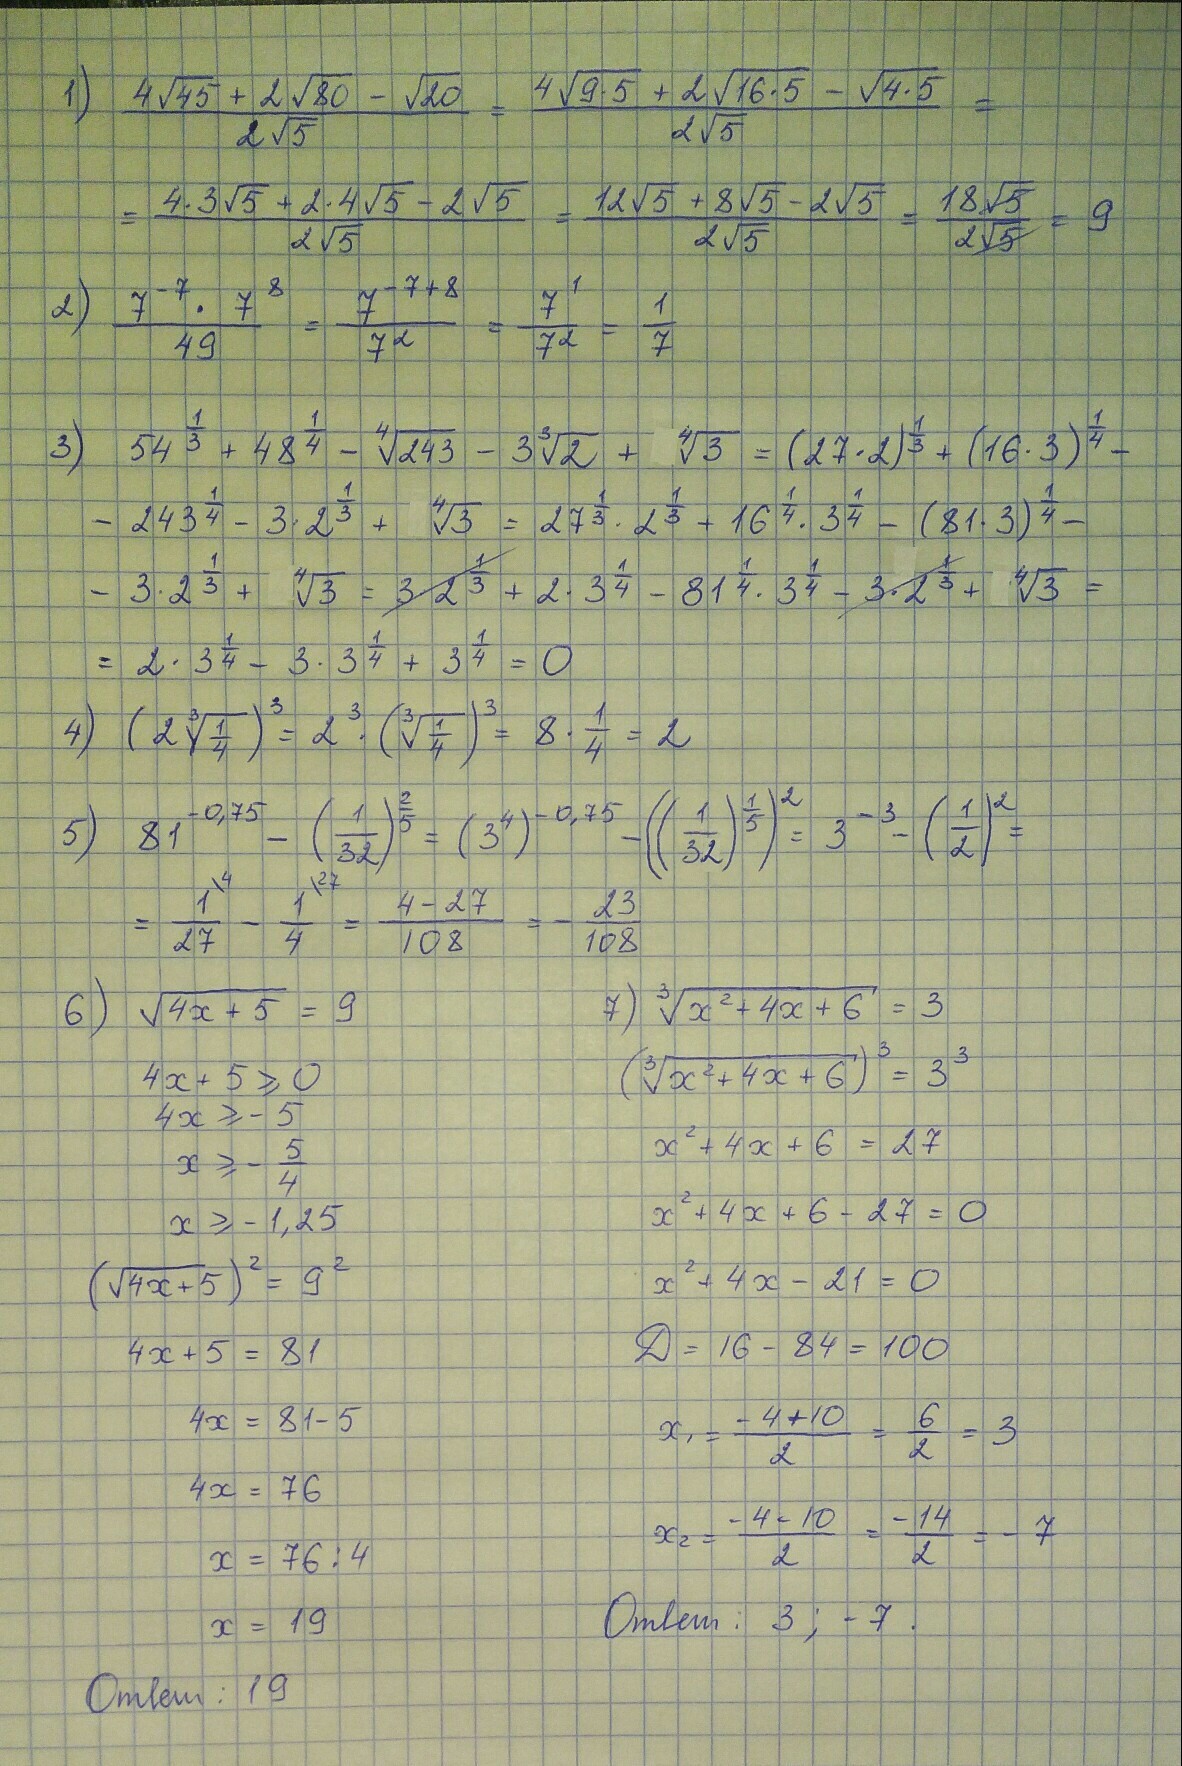 1) (4√45 + 2√80 − √20)/(2√5) = (4√(9·5) + 2√(16·5) − √(4·5))/(2√5) =
= (4·3√5 + 2·4√5 − 2√5)/(2√5) = (12√5 + 8√5 − 2√5)/(2√5) = 18√5/(2√5) = 9
2) (7^(−7) · 7^8)/49 = 7^(−7+8)/7^2 = 7^1/7^2 = 1/7
3) 54^(1/3) + 48^(1/4) − ∜243 − 3∛2 + ∜3 = (27·2)^(1/3) + (16·3)^(1/4) −
− 243^(1/4) − 3·2^(1/3) + ∜3 = 27^(1/3) · 2^(1/3) + 16^(1/4) · 3^(1/4) − (81·3)^(1/4) −
− 3·2^(1/3) + ∜3 = 3·2^(1/3) + 2·3^(1/4) − 81^(1/4) · 3^(1/4) − 3·2^(1/3) + ∜3 =
= 2·3^(1/4) − 3·3^(1/4) + 3^(1/4) = 0
4) (2∛(1/4))^3 = 2^3 · (∛(1/4))^3 = 8 · 1/4 = 2
5) 81^(−0,75) − (1/32)^(2/5) = (3^4)^(−0,75) − ((1/32)^(1/5))^2 = 3^(−3) − (1/2)^2 =
= 1\4/27 − 1\27/4 = (4−27)/108 = −23/108
6) √(4x+5) = 9
4x+5 ⩾ 0
4x ⩾ −5
x ⩾ −5/4
x ⩾ −1,25
(√(4x+5))^2 = 9^2
4x+5 = 81
4x = 81−5
4x = 76
x = 76:4
x = 19
Ответ: 19
7) ∛(x²+4x+6) = 3
(∛(x²+4x+6))^3 = 3^3
x²+4x+6 = 27
x²+4x+6−27=0
x²+4x−21=0
D = 16−84=100
x₁ = (−4+10)/2 = 6/2 = 3
x₂ = (−4−10)/2 = −14/2 = −7
Ответ: 3; −7.